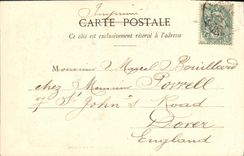 Imprimé
CARTE POSTALE
Ce côté est exclusivement réservé à l'adresse
Monsieur Marcel Rouillard
chez Monsieur Powell
7 St John's Road
Dover
England